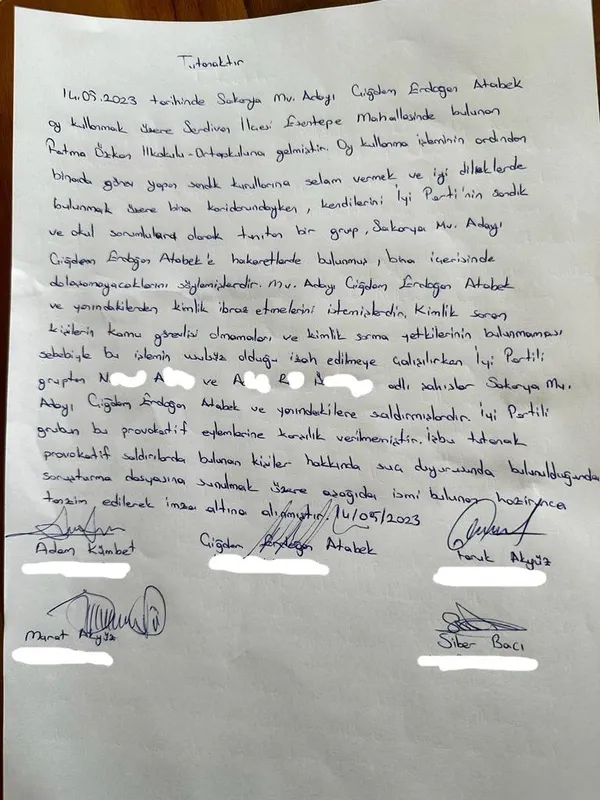 Tutanaktır
14.05.2023 tarihinde Sakarya Mv. Adayı Çiğdem Erdoğan Atabek
oy kullanmak üzere Serdivan İlçesi Esentepe Mahallesinde bulunan
Fatma Özkan İlkokulu-Ortaokuluna gelmiştir. Oy kullanma işleminin ardından
binada görev yapan sandık kurullarına selam vermek ve iyi dileklerde
bulunmak üzere bina koridorundayken, kendilerini İyi Parti'nin sandık
ve okul sorumluları olarak tanıtan bir grup, Sakarya Mv. Adayı
Çiğdem Erdoğan Atabek'e hakaretlerde bulunmuş, bina içerisinde
dolaşamayacaklarını söylemişlerdir. Mv. Adayı Çiğdem Erdoğan Atabek
ve yanındakilerden kimlik ibraz etmelerini istemişlerdir. Kimlik soran
kişilerin kamu görevlisi olmamaları ve kimlik sorma yetkilerinin bulunmaması
sebebiyle bu işlemin usulsüz olduğu izah edilmeye çalışılırken İyi Partili
gruptan N A ve A R adlı şahıslar Sakarya Mv.
Adayı Çiğdem Erdoğan Atabek ve yanındakilere saldırmışlardır. İyi Partili
grubun bu provokatif eylemlerine karşılık verilmemiştir. İşbu tutanak
provokatif saldırılarda bulunan kişiler hakkında suç duyurusunda bulunulduğunda
soruşturma dosyasına sunulmak üzere aşağıda ismi bulunan hazirunca
tanzim edilerek imza altına alınmıştır. 14/05/2023
Adem Kımbet Çiğdem Erdoğan Atabek Faruk Akyüz
Murat Akyüz Siber Bacı